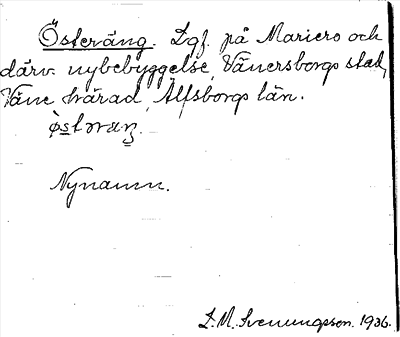 Österäng. Lgf. på Mariero och
därv. nybebyggelse, Vänersborgs stad,
Väne härad, Älfsborgs län.
Nynamn.
S. M. Svenungsson. 1936.